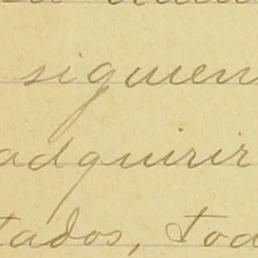 siguien
adquirir
tados, tod